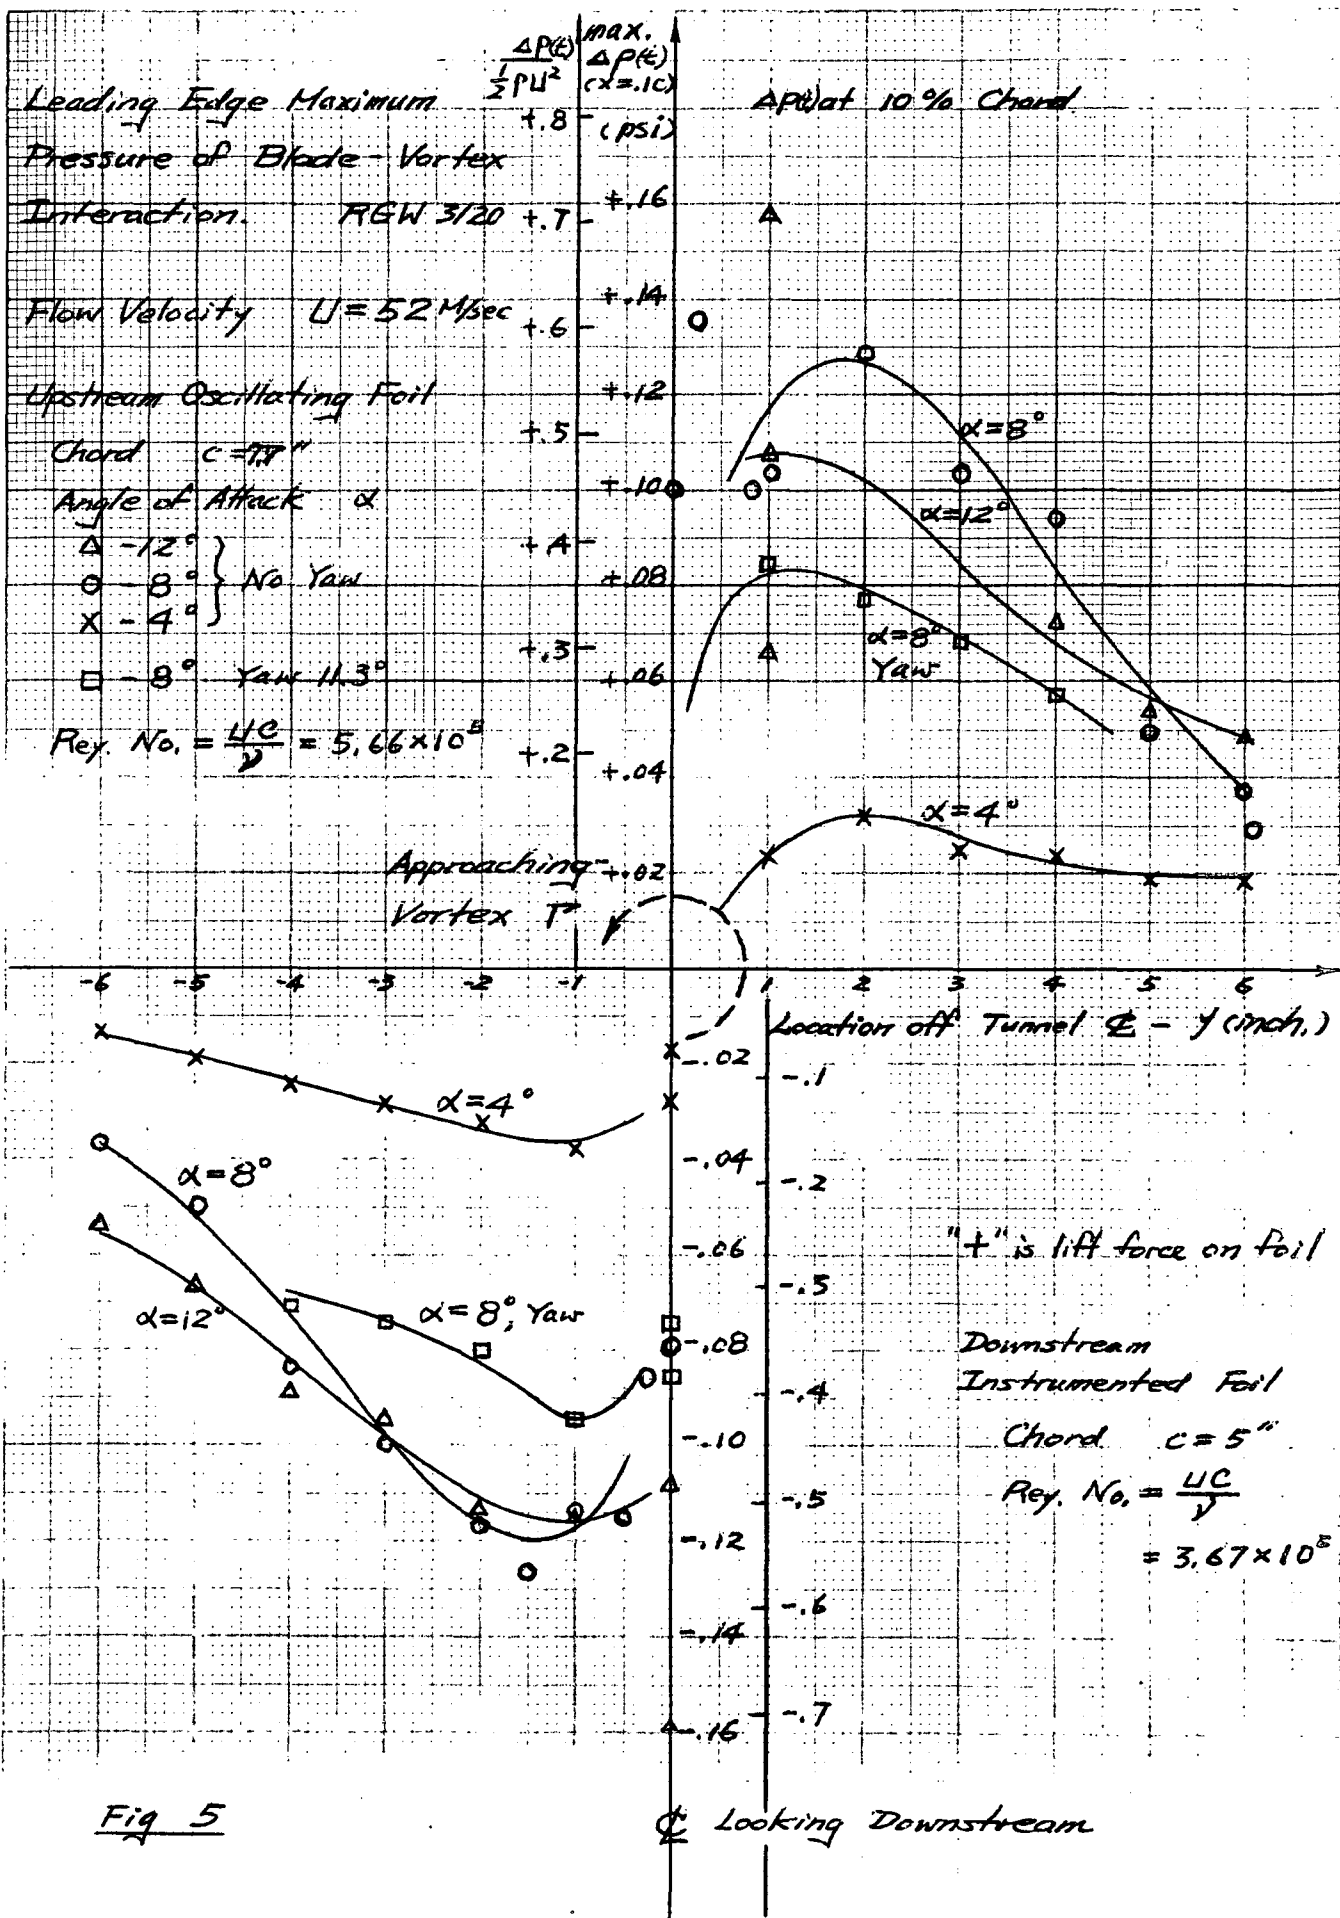 Leading Edge Maximum
Pressure of Blade-Vortex
Interaction. RGW 3/20
Flow Velocity U = 52 M/sec
Upstream Oscillating Foil
Chord
Angle of Attack α
△ -12°
○ - 8° } No Yaw
X - 4°
□ - 8° Yaw 11.3°
Rey. No. = UC/ν = 5.66×10⁵
ΔP(t) / ½ρU²
max. ΔP(t)
(x=.1c)
(psi)
ΔP(t) at 10% Chord
+.8
+.7
+.6
+.5
+.4
+.3
+.2
+.16
+.14
+.12
+.10
+.08
+.06
+.04
+.02
α=8°
α=12°
α=8°
Yaw
α=4°
Approaching
Vortex Γ
-6 -5 -4 -3 -2 -1 1 2 3 4 5 6
Location off Tunnel ℄ - y (inch.)
-.02
-.04
-.06
-.08
-.10
-.12
-.14
-.16
-.1
-.2
-.3
-.4
-.5
-.6
-.7
α=4°
α=8°
α=12°
α=8°, Yaw
"+" is lift force on foil
Downstream
Instrumented Foil
Chord c = 5"
Rey. No. = UC/ν
= 3.67×10⁵
Fig 5
℄ Looking Downstream